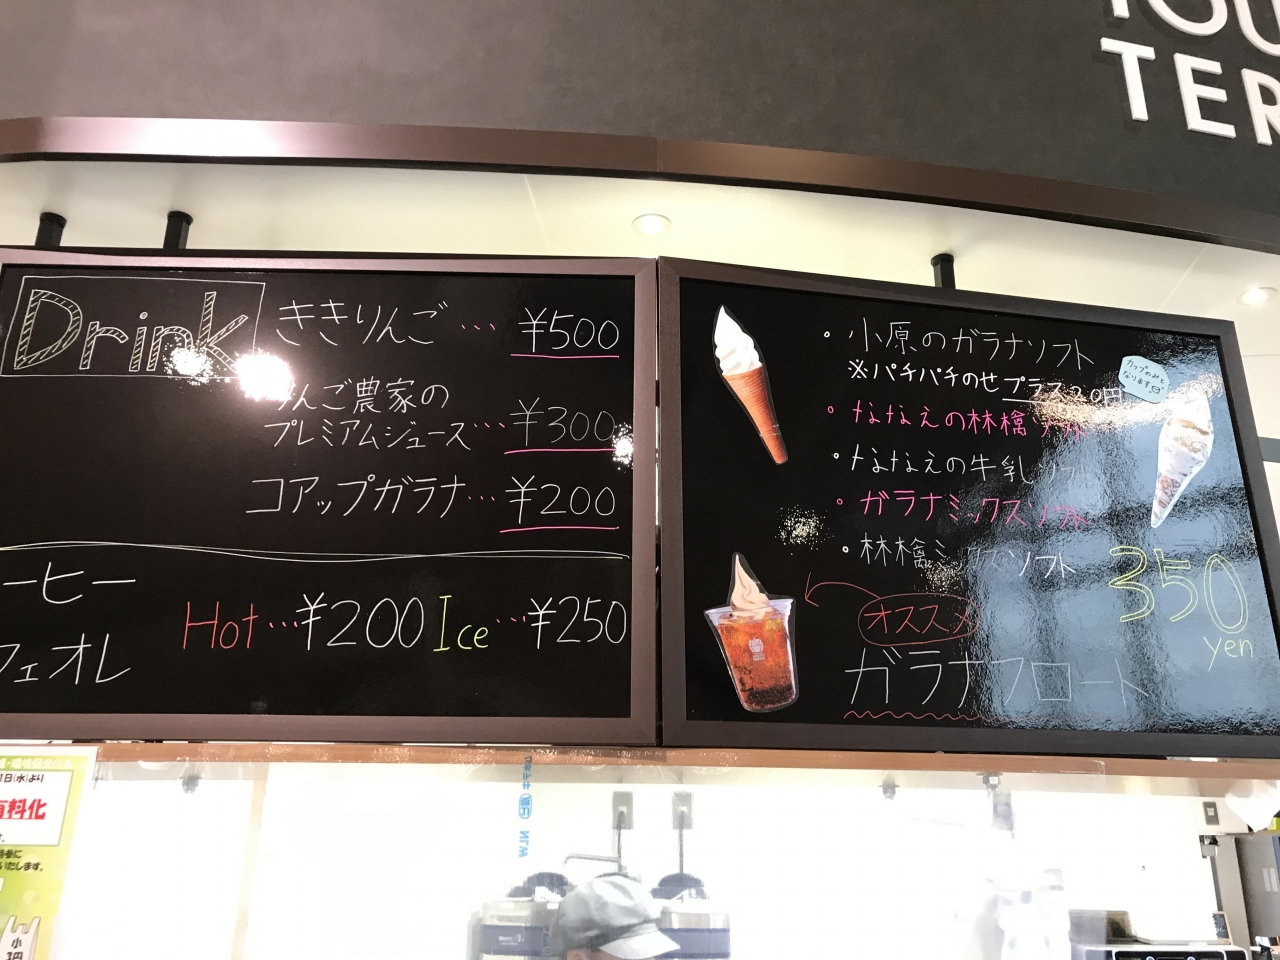 TER
Drink
ききりんご… ¥500
りんご農家の
プレミアムジュース… ¥300
コアップガラナ… ¥200
ーヒー
フェオレ
Hot…¥200 Ice…¥250
・小原のガラナソフト
※パチパチのせプラス30円
カップのみと
なります
・ななえの林檎ソフト
・ななえの牛乳ソフト
・ガラナミックスソフト
・林檎ミックスソフト
350
yen
オススメ
ガラナフロート
日(水)より
有料化
いたします。
小